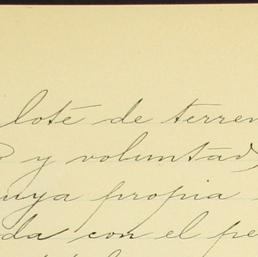 lote de terren
y voluntad,
uya propia
da con el pe